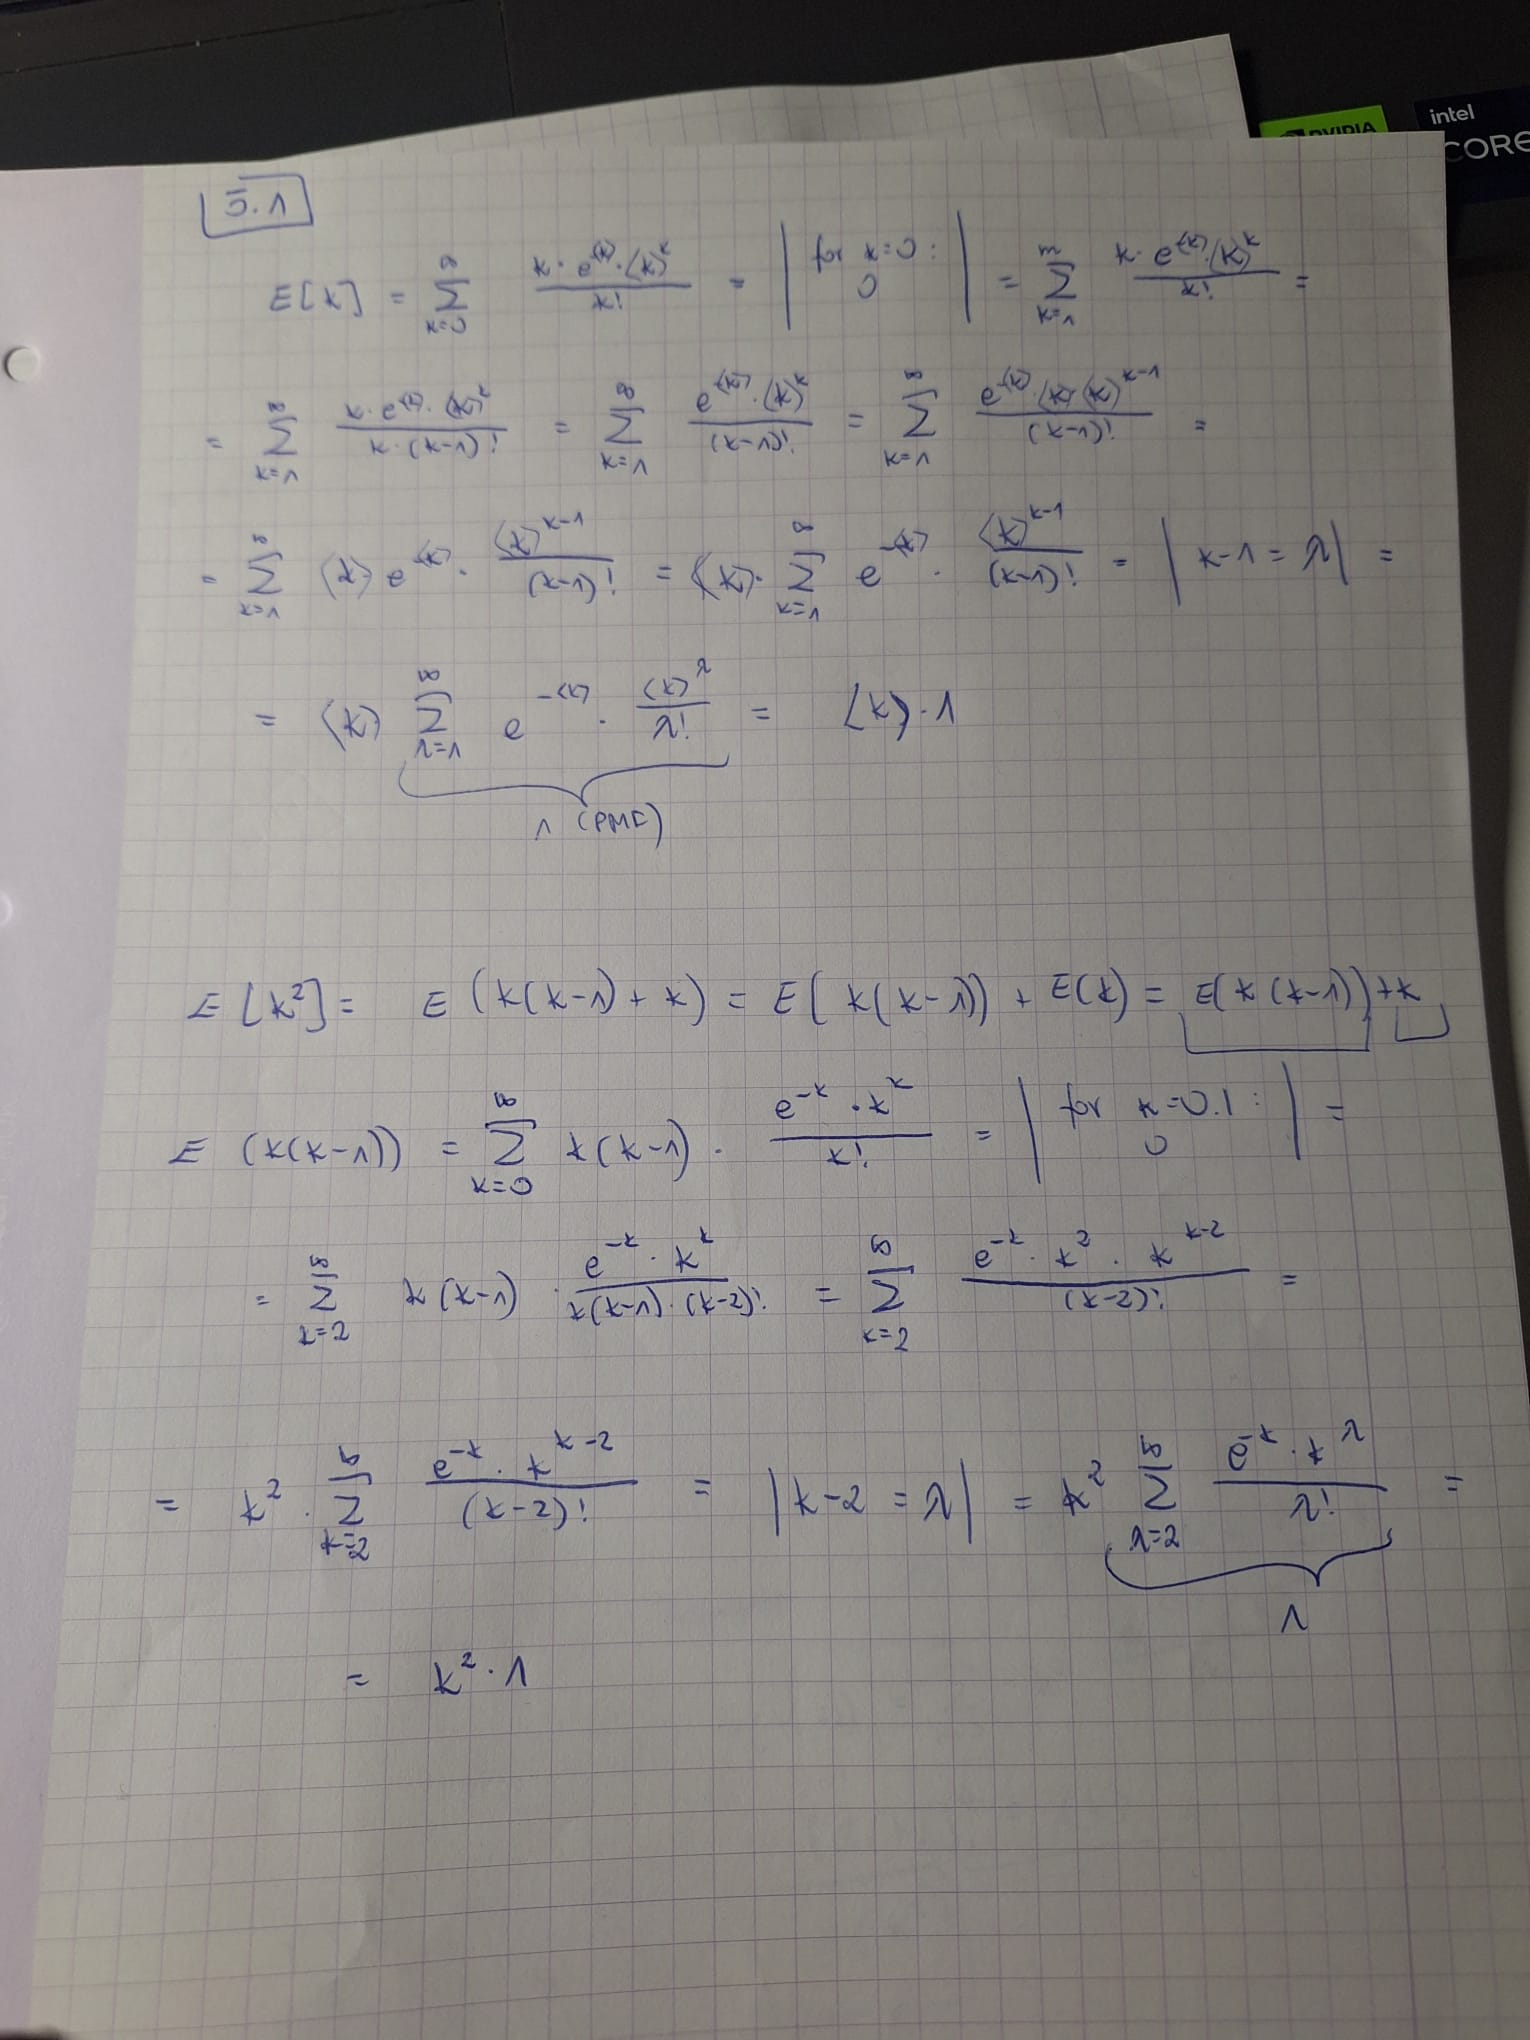 NVIDIA
intel
CORE
5.1
E[k] = ∑_{k=0}^{∞} \frac{k · e^{-⟨k⟩} · ⟨k⟩^k}{k!} = | for k=0: 0 | = ∑_{k=1}^{∞} \frac{k · e^{-⟨k⟩} · ⟨k⟩^k}{k!} =
= ∑_{k=1}^{∞} \frac{k · e^{-⟨k⟩} · ⟨k⟩^k}{k · (k-1)!} = ∑_{k=1}^{∞} \frac{e^{-⟨k⟩} · ⟨k⟩^k}{(k-1)!} = ∑_{k=1}^{∞} \frac{e^{-⟨k⟩} · ⟨k⟩⟨k⟩^{k-1}}{(k-1)!} =
= ∑_{k=1}^{∞} ⟨k⟩ e^{-⟨k⟩} · \frac{⟨k⟩^{k-1}}{(k-1)!} = ⟨k⟩ · ∑_{k=1}^{∞} e^{-⟨k⟩} · \frac{⟨k⟩^{k-1}}{(k-1)!} = | k-1 = λ | =
= ⟨k⟩ ∑_{λ=1}^{∞} e^{-⟨k⟩} · \frac{⟨k⟩^λ}{λ!} = ⟨k⟩ · 1
1 (PMF)
E[k²] = E(k(k-1)+k) = E(k(k-1)) + E(k) = E(k(k-1)) + k
E(k(k-1)) = ∑_{k=0}^{∞} k(k-1) · \frac{e^{-k} · k^k}{k!} = | for k=0.1: 0 | =
= ∑_{k=2}^{∞} k(k-1) · \frac{e^{-k} · k^k}{k(k-1) · (k-2)!} = ∑_{k=2}^{∞} \frac{e^{-k} · k² · k^{k-2}}{(k-2)!} =
= k² · ∑_{k=2}^{∞} \frac{e^{-k} · k^{k-2}}{(k-2)!} = | k-2 = λ | = k² ∑_{λ=2}^{∞} \frac{e^{-k} · k^λ}{λ!} =
1
= k² · 1